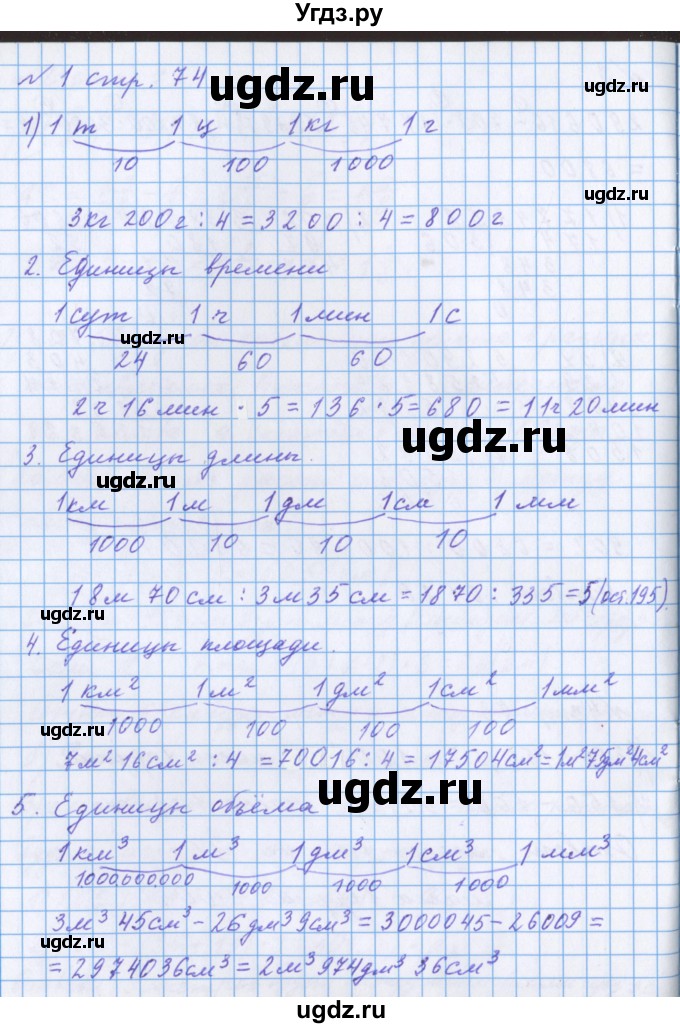 Угдз.ру
№ 1 стр. 74
ugdz.ru
ugdz.ru
1) 1 т 1 ц 1 кг 1 г
10 100 1000
ugdz.ru
ugdz.ru
3кг 200г : 4 = 3200 : 4 = 800г
2. Единицы времени
1 сут 1 ч 1 мин 1 с
ugdz.ru
24 60 60
2 ч 16 мин · 5 = 136 · 5 = 680 = 11ч 20 мин
ugdz.ru
3. Единицы длины.
ugdz.ru
1км 1м 1дм 1см 1 мм
1000 10 10 10
18м 70см : 3м 35см = 1870 : 335 = 5 (ост.195)
ugdz.ru
4. Единицы площади.
1 км² 1м² 1дм² 1см² 1мм²
1000 100 100 100
ugdz.ru
7м² 16см² : 4 = 70016 : 4 = 17504см² = 1м² 75дм² 4см²
ugdz.ru
5. Единицы объёма
1км³ 1 м³ 1дм³ 1см³ 1 мм³
1000000000 1000 1000 1000
3м³ 45см³ - 26дм³ 9см³ = 3000045 - 26009 =
ugdz.ru
= 2974036см³ = 2м³ 974дм³ 36см³
ugdz.ru